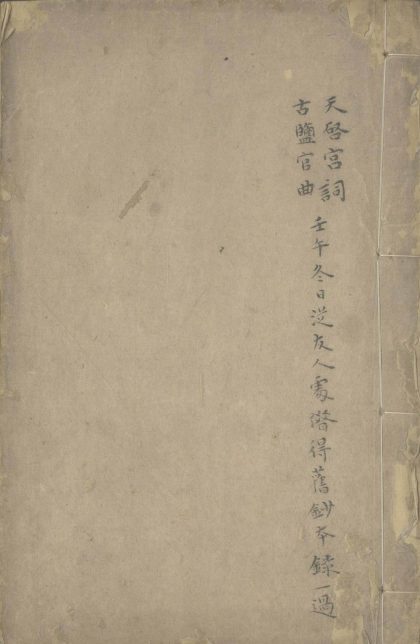 天啓宮詞
古鹽官曲
壬午冬日從友人處借得舊鈔本錄一過